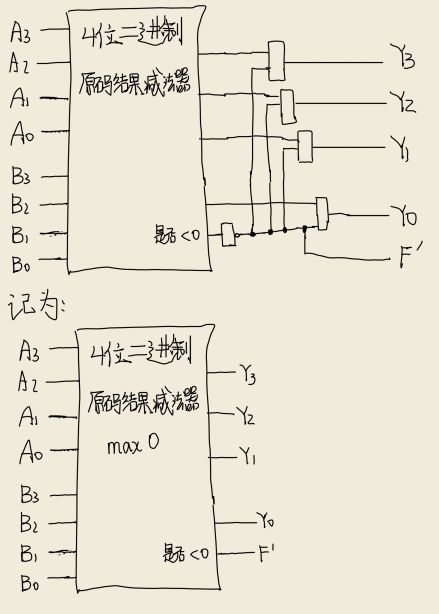 A3
A2
A1
A0
B3
B2
B1
B0
4位二进制
原码结果减法器
是否<0
Y3
Y2
Y1
Y0
F'
记为:
A3
A2
A1
A0
B3
B2
B1
B0
4位二进制
原码结果减法器
max 0
是否<0
Y3
Y2
Y1
Y0
F'